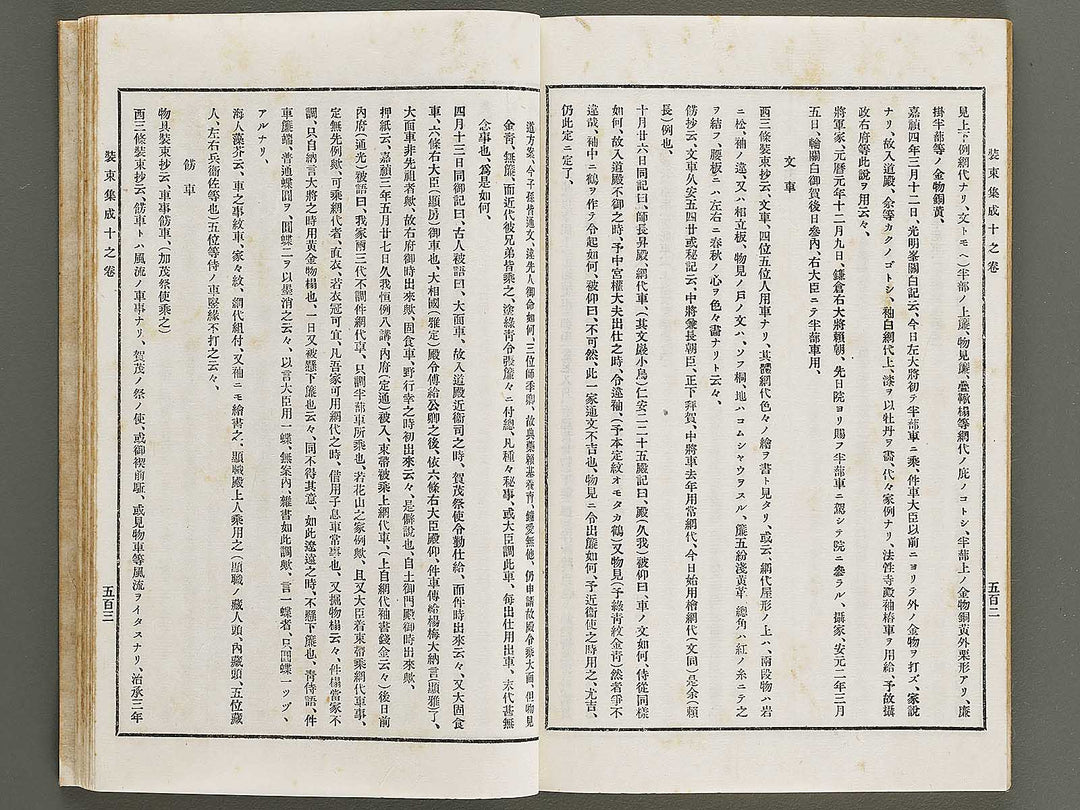 裝束集成十之卷
五百二
見上ニ例網代ナリ、文トモ(ヘ)半部ノ上簾、物見簾、疊鞦榻等網代ノ庇ノコトシ、半蔀上ノ金物銅黃外栗形アリ、簾
掛半蔀等ノ金物銅黃、
嘉禎四年三月十二日、光明峯關白記云、今日左大將初テ半蔀車ニ乘、件車大臣以前ニヨリテ外ノ金物ヲ打ズ、家說
ナリ、故入道殿、余等カクノゴトシ、釉白網代上、漆ヲ以牡丹ヲ畵、代々家例ナリ、法性寺殿袖椿車ヲ用給、予故攝
政右府等此說ヲ用云々、
將軍家、元曆元年十二月九日、鎌倉右大將賴朝、先日院ヨリ賜フ半蔀車ニ駕シテ院ニ參ラル、攝家、安元二年三月
五日、輪關白御賀後日參內、右大臣ニテ半蔀車用、
文車
西三條裝束抄云、文車、四位五位人用車ナリ、其體網代色々ノ繪ヲ書ト見タリ、或云、網代屋形ノ上ハ、兩段物ハ岩
ニ松、袖ノ違、又ハ相立板、物見ノ戶ノ文ハ、ソフ桐、地ハコムシヤウヲスル、簾五紛淺黃革、總角ハ紅ノ糸ニテ之
ヲ結フ、腰板ニハ左右ニ春秋ノ心ヲ色々畵ナリト云々、
餝抄云、文車久安五四廿或秘記云、中將兼長朝臣、正下拜賀、中將車去年用常網代、今日始用檜網代(文同)是余(賴
長)例也、
十月廿六日同記曰、師長昇殿、網代車、(其文嚴小鳥)仁安二二十五殿記曰、殿(久我)被仰曰、車ノ文如何、侍從同樣
如何、故入道殿不御之時、予中宮權大夫出仕之時、令違袖、(予本定紋オモタカ鶴)又物見(予綠靑紋金靑)然者爭不
違哉、袖中ニ鶴ヲ作テ令起如何、被仰曰、不可然、此一家通文不吉也、物見ニ令出簾如何、予近衞使之時用之、尤吉、
仍此定ニ定了、
道方案、今子孫皆通文、違先人御命如何、三位師季卿、故典藥賴基養育、鍾愛無他、仍申請故殿令乘大面、但物見
金靑、無簾、而近代彼兄弟皆乘之、塗綠靑令張簾々ニ付總、凡種々秘事、或大臣調此車、每出仕用出車、末代甚無
念事也、爲是如何、
四月十三日同御記曰、古人被語曰、大面車、故入道殿近衞司之時、賀茂祭使令勤仕給、而件時出來云々、又大固食
車、六條右大臣(顯房)御車也、大相國(雅定)殿令傅給公卿之後、依六條右大臣殿仰、件車傳給楊梅大納言(顯雅)了、
大面車非先祖者歟、故右府御時出來歟、固食車野行幸之時初出來云々、是僻說也、自土御門殿御時出來歟、
押紙云、嘉禎三年五月廿七日久我恒例八講、內府(定通)被入、束帶被乘上網代車、(上自網代袖書錢金云々)後日前
內府(通光)被語曰、我家兩三代不調件網代車、只調半蔀車所乘也、若花山之家例歟、且又大臣着束帶乘網代車事、
定無先規歟、可乘網代者、直衣、若衣冠可宜、凡吾家可用網代之時、借用子息車當事也、又擬物榻云々、件榻當家不
調、只自納言大將之時用黃金物榻也、一日又被懸下簾也云々、同不得其意、如此遼遠之時、不懸下簾也、靑侍語、件
車簾端、普通蝶圓ヲ、圓蝶二ヲ以墨消之云々、以言大臣用一蝶、無案內、雜書如此調歟、言一蝶者、只圓蝶一ツヅヽ
アルナリ、
海人藻芥云、車之事紋車、家々紋、網代組付、又袖ニモ繪書之、顯職殿上人乘用之(顯職ノ藏人頭、內藏頭、五位藏
人、左右兵衞佐等也)五位等侍ノ車堅緣不打之云々、
物具裝束抄云、車事餝車、(加茂祭使乘之)
餝車
西三條裝束抄云、餝車トハ風流ノ車事ナリ、賀茂ノ祭ノ使、或御禊前駈、或見物車等風流ヲイタスナリ、治承三年
裝束集成十之卷
五百三